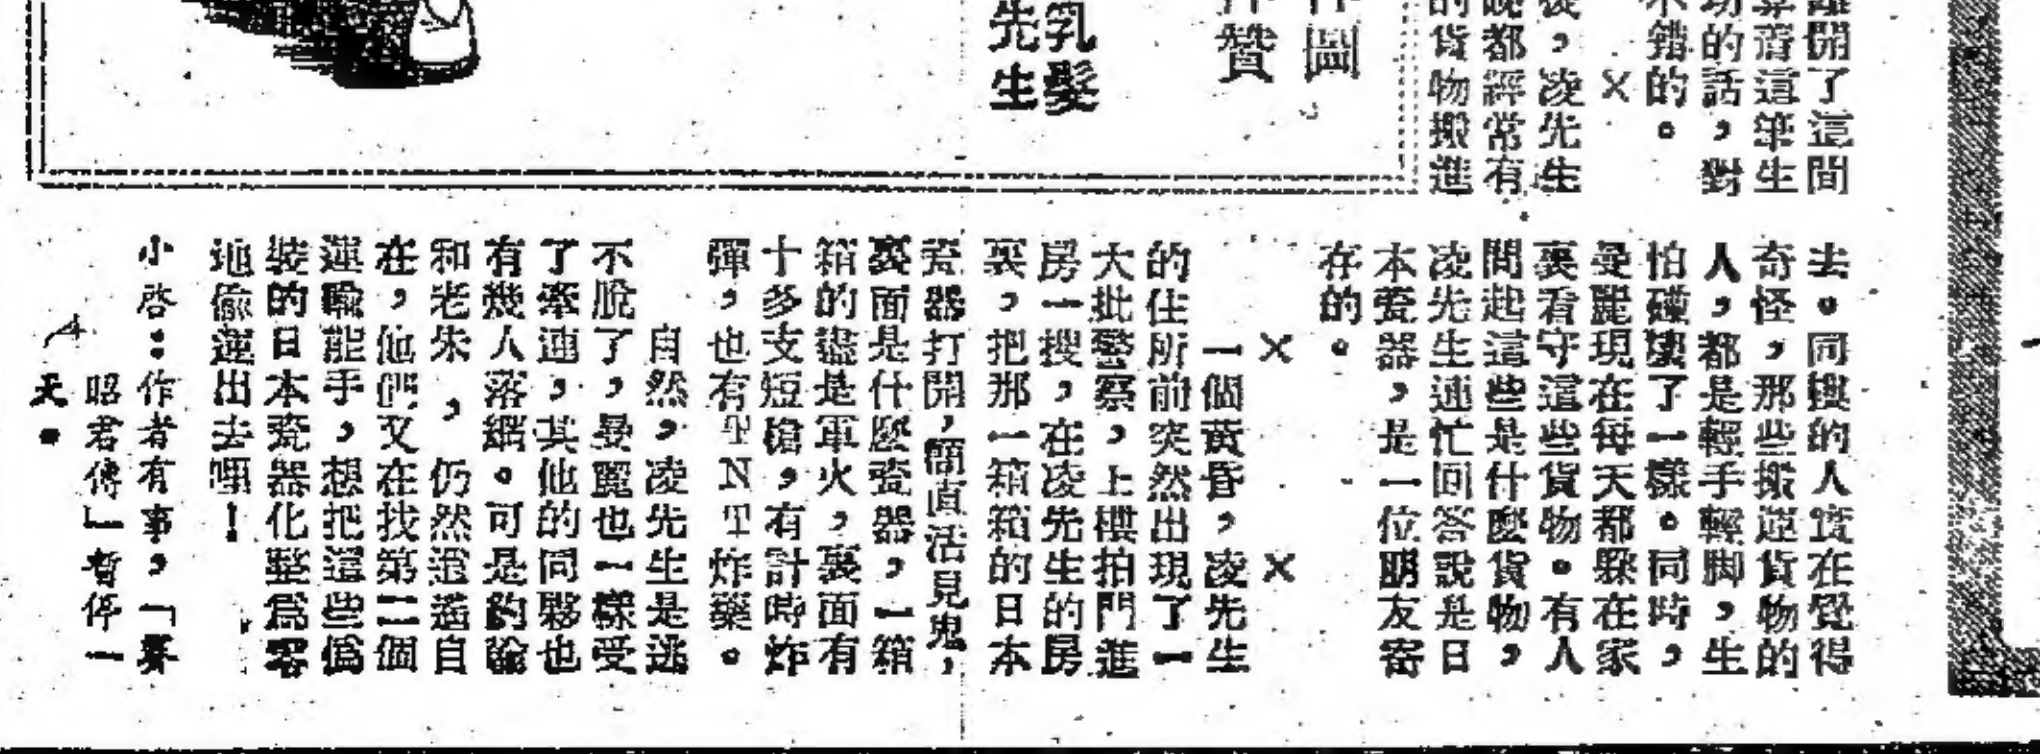 離開了這間
算這筆生
功的話，對
不錯的。
×
後，凌先生
晚都經常有
的貨物搬進
圖
贊
乳髮
先生
去。同樓的人實在覺得
奇怪，那些搬運貨物的
人，都是輕手輕脚，生
怕碰壞了一樣。同時，
曼麗現在每天都躲在家
裏看守這些貨物。有人
問起這些是什麼貨物，
凌先生連忙回答說是日
本瓷器，是一位朋友寄
存的。
× ×
一個黃昏，凌先生
的住所前突然出現了一
大批警察，上樓拍門進
房一搜，在凌先生的房
裏，把那一箱箱的日本
瓷器打開，簡直活見鬼，
裏面是什麼瓷器，一箱
箱的儘是軍火，裏面有
十多支短槍，有計時炸
彈，也有TNT炸藥。
自然，凌先生是逃
不脫了，曼麗也一樣受
了牽連，其他的同夥也
有幾人落網。可是約翰
和老朱，仍然逍遙自
在，他們又在找第二個
運輸能手，想把這些僞
裝的日本瓷器化整爲零
地偷運出去哩！
小啓：作者有事，「賽
昭君傳」暫停一
天。